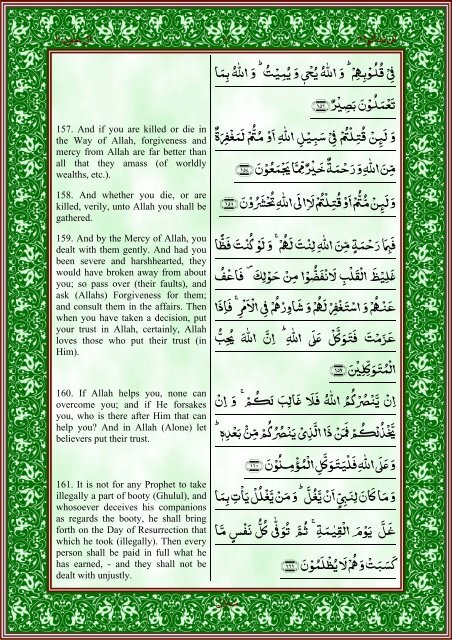 فِىۡ قُلُوۡبِهِمۡ‌ؕ وَ اللّٰهُ يُحۡىٖ وَ يُمِيۡتُ‌ؕ وَ اللّٰهُ بِمَا
تَعۡمَلُوۡنَ بَصِيۡرٌ ﴿۱۵۶﴾
وَلَٮِٕنۡ قُتِلۡتُمۡ فِىۡ سَبِيۡلِ اللّٰهِ اَوۡ مُتُّمۡ لَمَغۡفِرَةٌ
مِّنَ اللّٰهِ وَرَحۡمَةٌ خَيۡرٌ مِّمَّا يَجۡمَعُوۡنَ ﴿۱۵۷﴾
وَلَٮِٕنۡ مُّتُّمۡ اَوۡ قُتِلۡتُمۡ لَا۟اِلَى اللّٰهِ تُحۡشَرُوۡنَ ﴿۱۵۸﴾
فَبِمَا رَحۡمَةٍ مِّنَ اللّٰهِ لِنۡتَ لَهُمۡ‌ۚ وَلَوۡ كُنۡتَ فَظًّا
غَلِيۡظَ الۡقَلۡبِ لَانْفَضُّوۡا مِنۡ حَوۡلِكَ‌ فَاعۡفُ
عَنۡهُمۡ وَاسۡتَغۡفِرۡ لَهُمۡ وَشَاوِرۡهُمۡ فِى الۡاَمۡرِ‌ۚ فَاِذَا
عَزَمۡتَ فَتَوَكَّلۡ عَلَى اللّٰهِ‌ؕ اِنَّ اللّٰهَ يُحِبُّ
الۡمُتَوَكِّلِيۡنَ ﴿۱۵۹﴾
اِنۡ يَّنۡصُرۡكُمُ اللّٰهُ فَلَا غَالِبَ لَـكُمۡ‌ۚ وَاِنۡ
يَّخۡذُلۡكُمۡ فَمَنۡ ذَا الَّذِىۡ يَنۡصُرُكُمۡ مِّنۡۢ بَعۡدِهٖ‌ؕ
وَعَلَى اللّٰهِ فَلۡيَتَوَكَّلِ الۡمُؤۡمِنُوۡنَ ﴿۱۶۰﴾
وَمَا كَانَ لِنَبِىٍّ اَنۡ يَّغُلَّ‌ؕ وَمَنۡ يَّغۡلُلۡ يَاۡتِ بِمَا
غَلَّ يَوۡمَ الۡقِيٰمَةِ‌ۚ ثُمَّ تُوَفّٰى كُلُّ نَفۡسٍ مَّا
كَسَبَتۡ وَهُمۡ لَا يُظۡلَمُوۡنَ ﴿۱۶۱﴾
157. And if you are killed or die in
the Way of Allah, forgiveness and
mercy from Allah are far better than
all that they amass (of worldly
wealths, etc.).
158. And whether you die, or are
killed, verily, unto Allah you shall be
gathered.
159. And by the Mercy of Allah, you
dealt with them gently. And had you
been severe and harshhearted, they
would have broken away from about
you; so pass over (their faults), and
ask (Allahs) Forgiveness for them;
and consult them in the affairs. Then
when you have taken a decision, put
your trust in Allah, certainly, Allah
loves those who put their trust (in
Him).
160. If Allah helps you, none can
overcome you; and if He forsakes
you, who is there after Him that can
help you? And in Allah (Alone) let
believers put their trust.
161. It is not for any Prophet to take
illegally a part of booty (Ghulul), and
whosoever deceives his companions
as regards the booty, he shall bring
forth on the Day of Resurrection that
which he took (illegally). Then every
person shall be paid in full what he
has earned, - and they shall not be
dealt with unjustly.